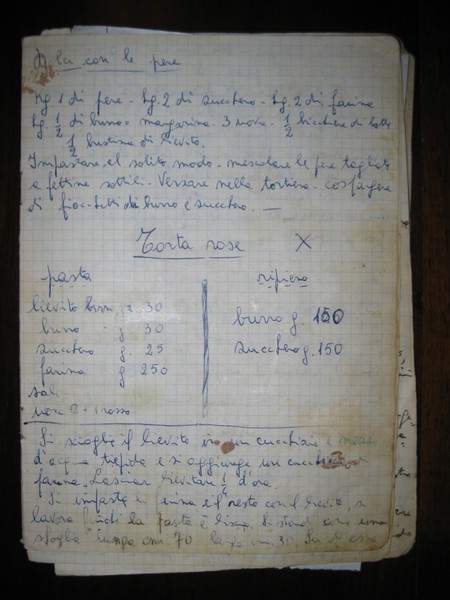 con le pere
Kg 1 di pere - hg. 2 di zucchero - hg. 2 di farina
hg. 1/2 di burro o margarina - 3 uova - 1/2 bicchiere di latte
1/2 bustina di lievito.
Impastare al solito modo - mescolare le pere tagliate
a fettine sottili. Versare nella tortiera - cospargere
di fiocchetti di burro e zucchero. —
Torta rose X
pasta
lievito birra gr. 30
burro g. 30
zucchero g. 25
farina g. 250
sale
uova 2 - 1 rosso
ripieno
burro g. 150
zucchero g. 150
Si scioglie il lievito in un cucchiaio e mezzo
d'acqua tiepida e si aggiunge un cucchiaio di
farina. Lasciar lievitare 1/4 d'ora.
Si impasta la farina e il resto con il lievito, si
lavora finché la pasta è liscia. Si stende come una
sfoglia lunga cm. 70 larga cm. 30.